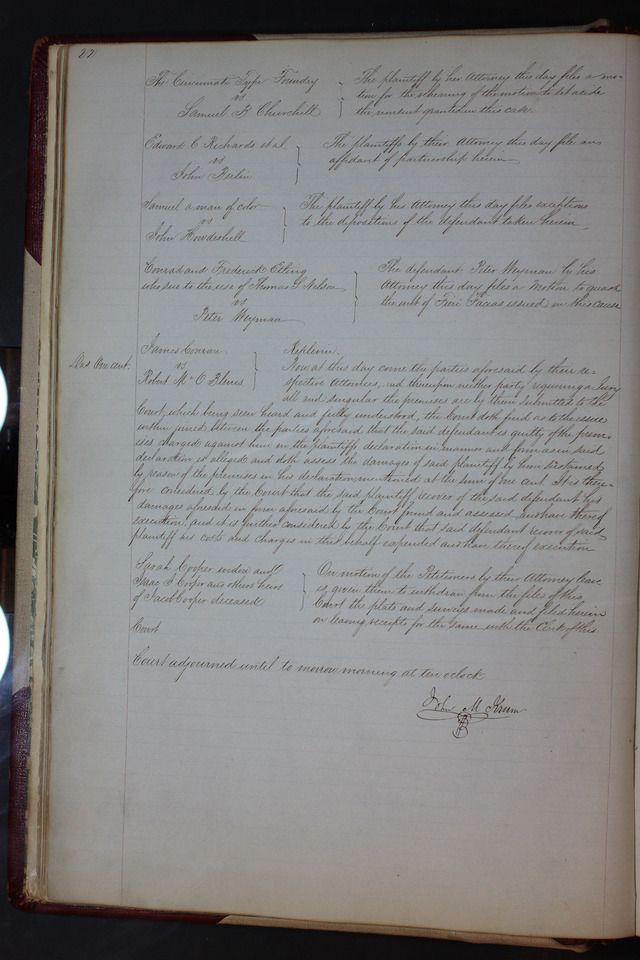 22
The Cincinnati Type Foundry
vs
Samuel B Churchill
The plaintiff by her Attorney this day files a mo-
tion for the rehearing of the motion to set aside
the nonsuit granted in this case.
Edward C Richards et al
vs
John
The plaintiffs by their Attorney this day file an
affidavit of partnership herein
Samuel a man of color
vs
John Howdeshell
The plaintiff by his Attorney this day files exceptions
to the depositions of the defendant taken herein
Conrad and Frederick
who sue to the use of Thomas S Nelson
vs
Peter Weyman
The defendant Peter Weyman by his
Attorney this day files a Motion to quash
the writ of Fieri Facias issued in this cause
Das One cent.
James Conran
vs
Robert McO Blenis
Replevin.
Now at this day come the parties aforesaid by their re-
spective Attornies, and thereupon neither party requiring a Jury
all and singular the premises are by them submitted to the
Court, which being seen heard and fully understood, the Court doth find as to the issue
within joined between the parties aforesaid that the said defendant is guilty of the prem-
ises charged against him in the plaintiffs declaration in manner and form as in said
declaration is alleged and doth assess the damages of said plaintiff by him sustained
by reason of the premises in his declaration mentioned at the sum of one cent. It is there-
fore considered by the Court that the said plaintiff recover of the said defendant his
damages aforesaid in form aforesaid by the Court found and assessed and have thereof
execution, and it is further considered by the Court that said defendant recover of said
plaintiff his costs and charges in this behalf expended and have thereof execution
Sarah Cooper widow and
Isaac J Cooper and others heirs
of Jacob Cooper deceased
On motion of the Petitioners by their Attorney leave
is given them to withdraw from the files of this
Court the plats and surveys made and filed herein
on leaving receipts for the same with the Clerk of this
Court
Court adjourned until to morrow morning at ten oclock
John M Krum